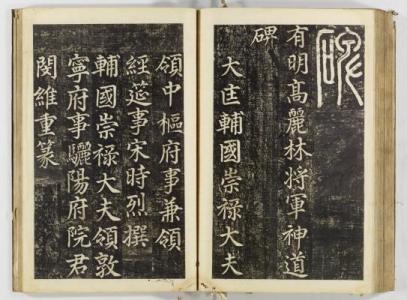 碑
有明高麗林將軍神道
碑
大匡輔國崇祿大夫
領中樞府事兼領
經筵事宋時烈撰
輔國崇祿大夫領敦
寧府事驪陽府院君
閔維重篆